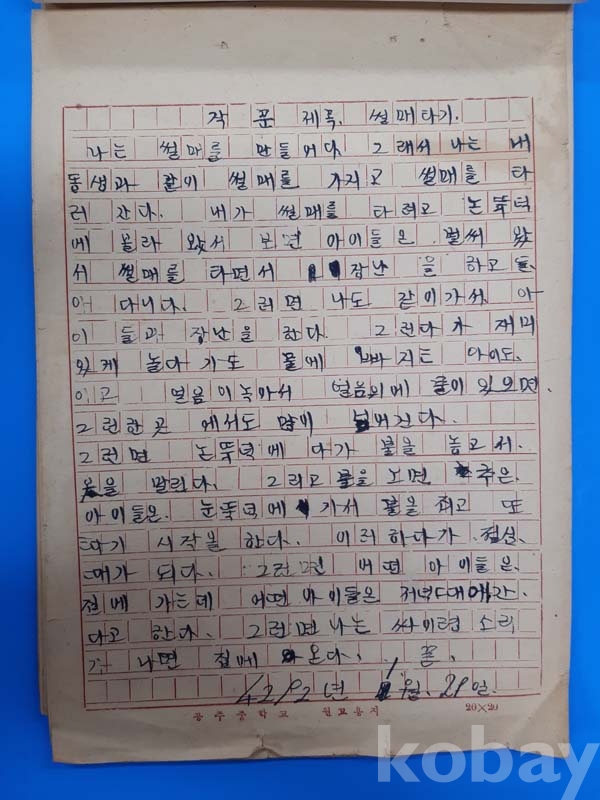 작문제목. 썰매타기.
나는 썰매를 만들어다. 그래서 나는 내
동생과 같이 썰매를 가지고 썰매를 타
러 간다. 내가 썰매를 타려고 논뚝덕
에 올라 왔서 보면 아이들은 벌써 왔
서 썰매를 타면서 장난을 하고 돌
아 다니다. 그러면 나도 같이가서 아
이들과 장난을 한다. 그런다가 재미
있게 놀다가도 물에 빠지는 아이도.
이고 얼음이녹아서 얼음위에 물이 있으면.
그런한곳 에서도 많이 넘어진다.
그런면 논뚝덕에 다가 불을 놓고서.
옷을 말린다. 그리고 불을 노면 추은.
아이들은. 논뚝덕에 가서 불을 쬐고 또
타기 시작을 한다. 이러하다가 점심.
때가 되다. 그런면 어떤 아이들은.
집에 가는데 어떤아이들은 저녁때에간.
다고 한다. 그런면나는 싸이렌 소리
가 나면 집에 온다. 끝.
4292년 1월. 29일.
공주중학교 원고용지 20×20
kobay